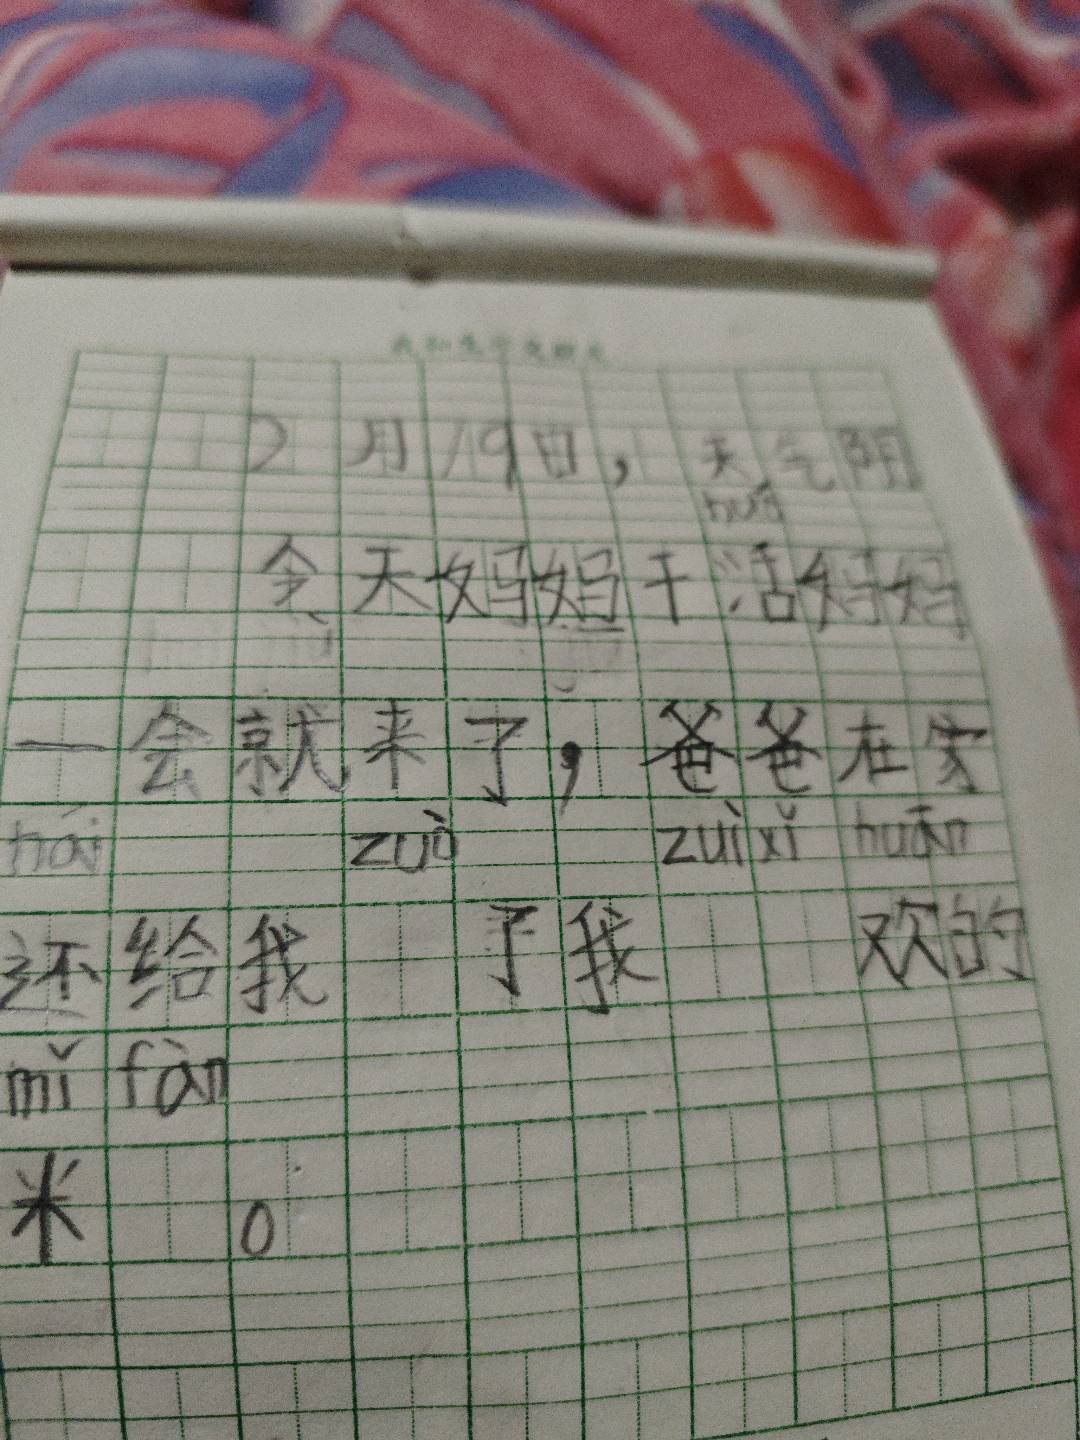 2月19日，天气阴
huó
今天妈妈干活妈妈
一会就来了，爸爸在家
hái zuò zuì xǐ huān
还给我 了我 欢的
mǐ fàn
米 。